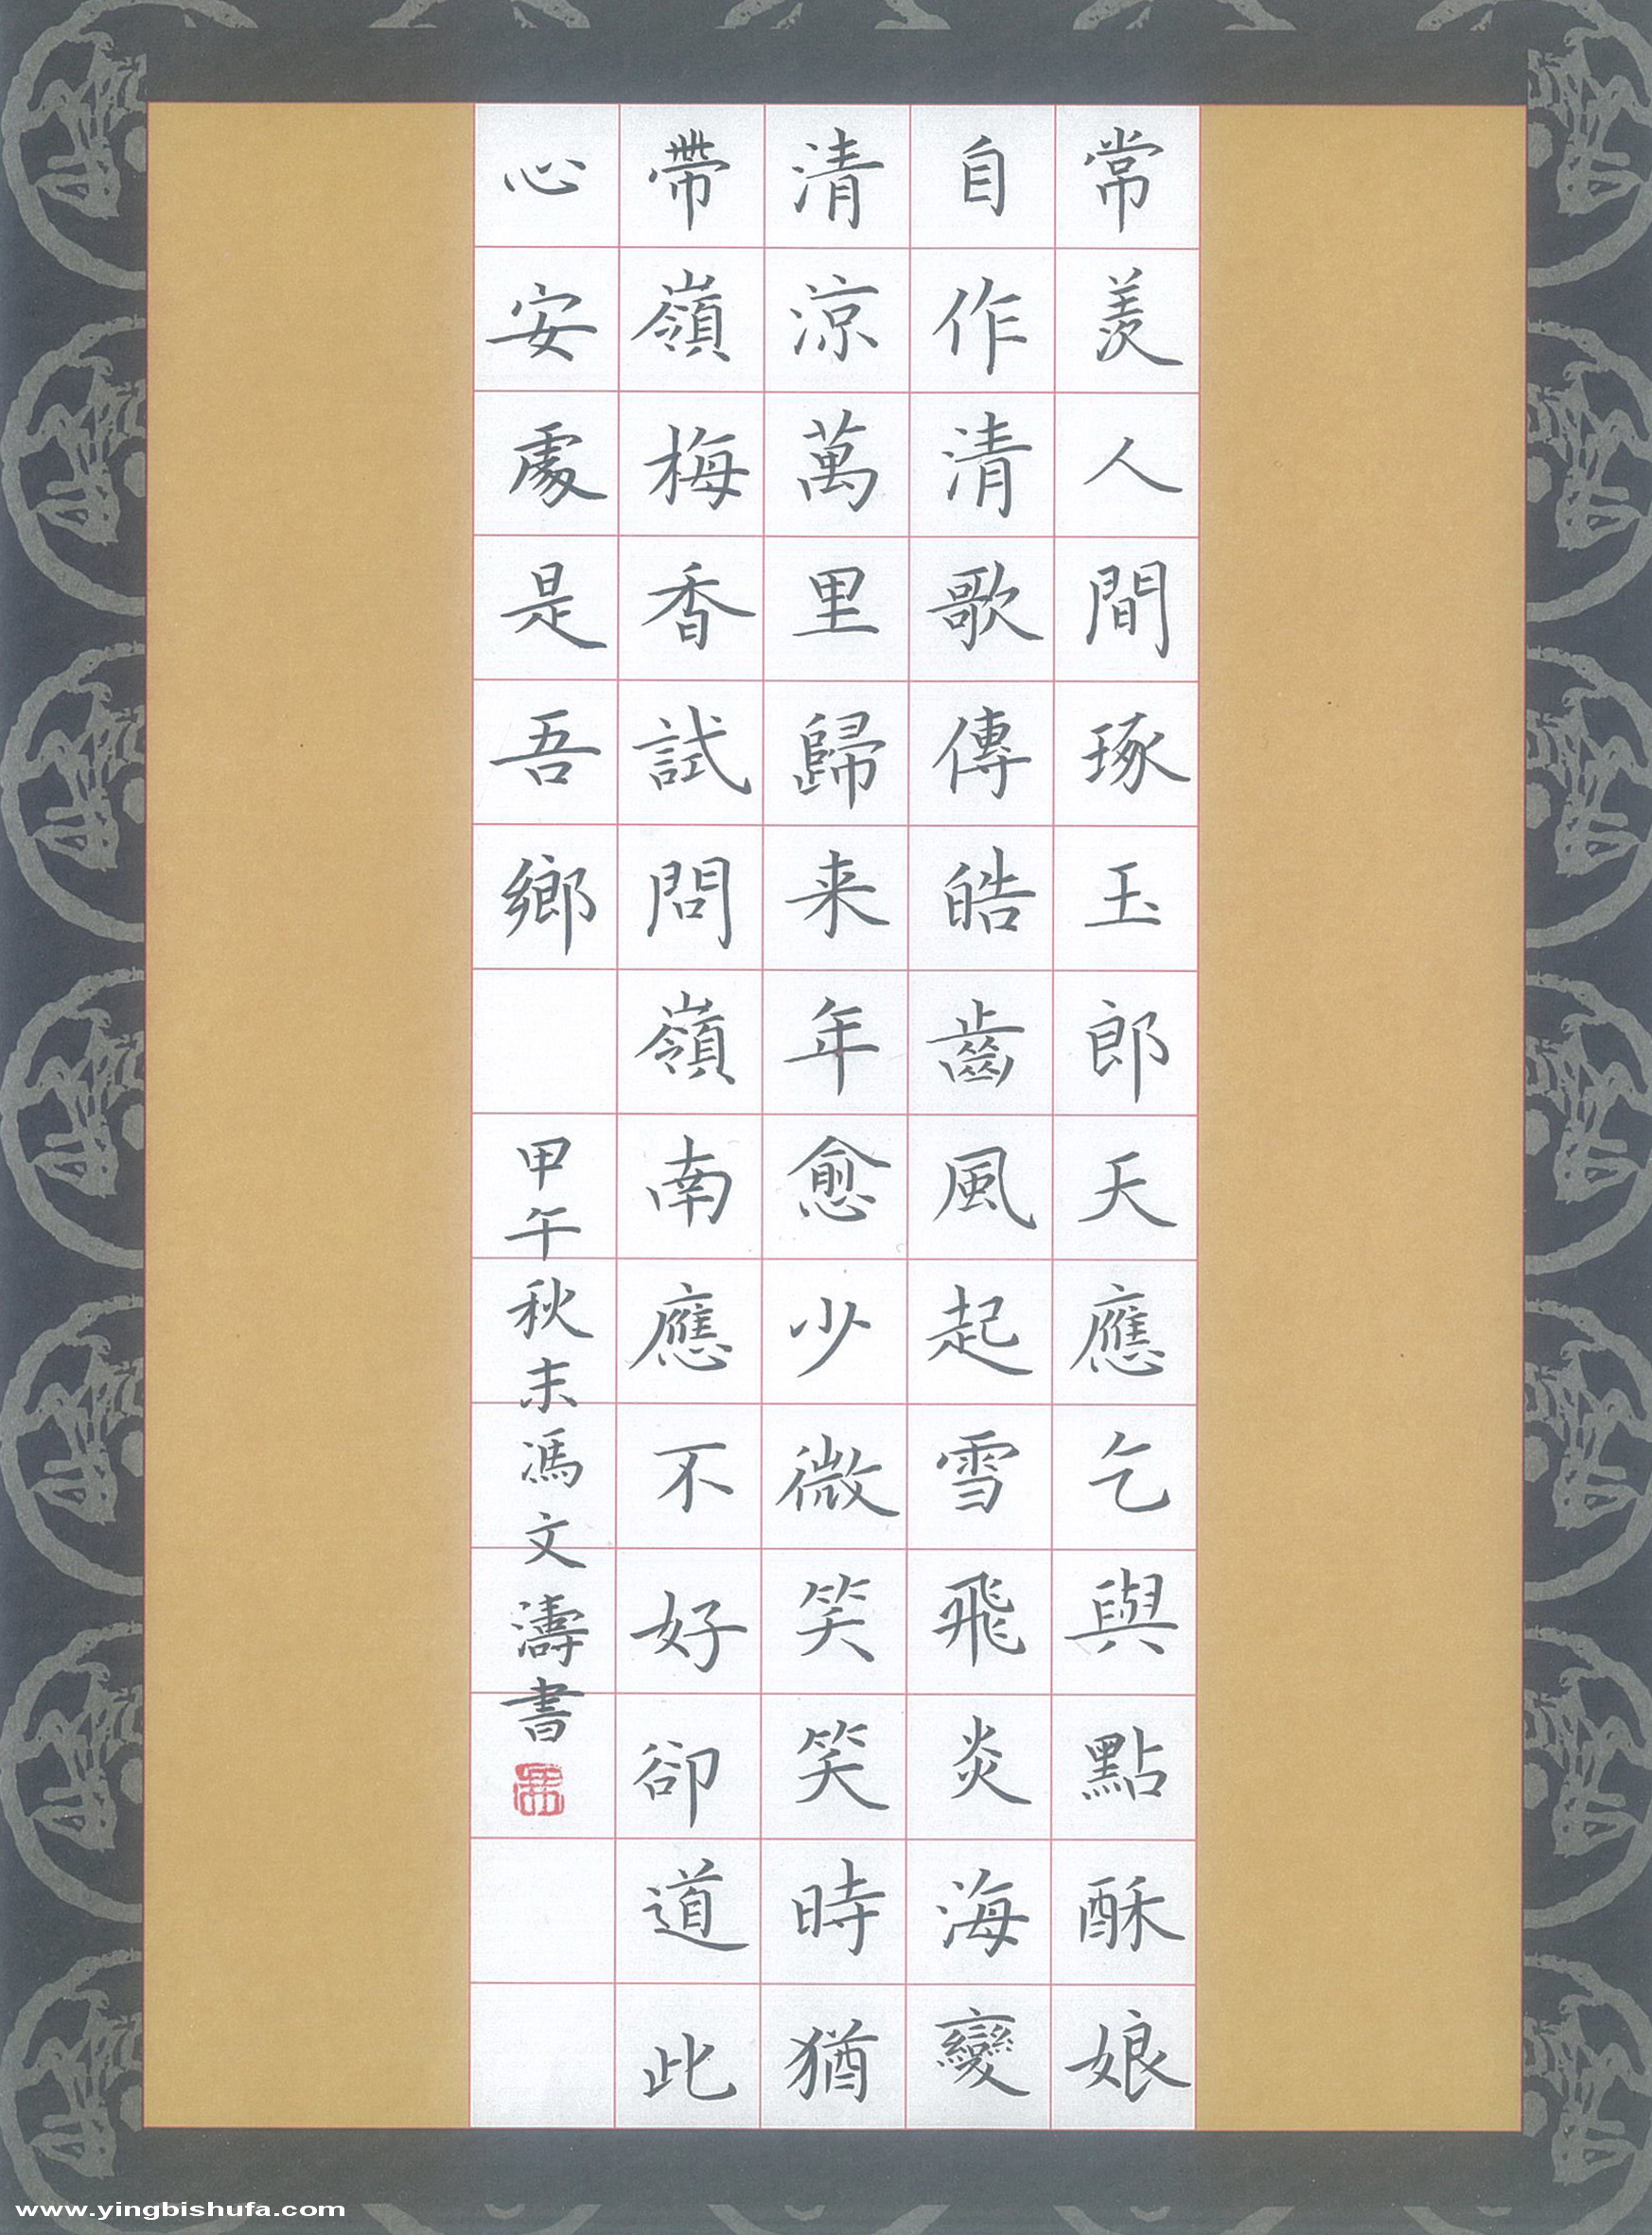 常羡人間琢玉郎天應乞與點酥娘
自作清歌傳皓齒風起雪飛炎海變
清涼萬里歸来年愈少微笑笑時猶
帶嶺梅香試問嶺南應不好卻道此
心安處是吾鄉
甲午秋末馮文濤書
www.yingbishufa.com